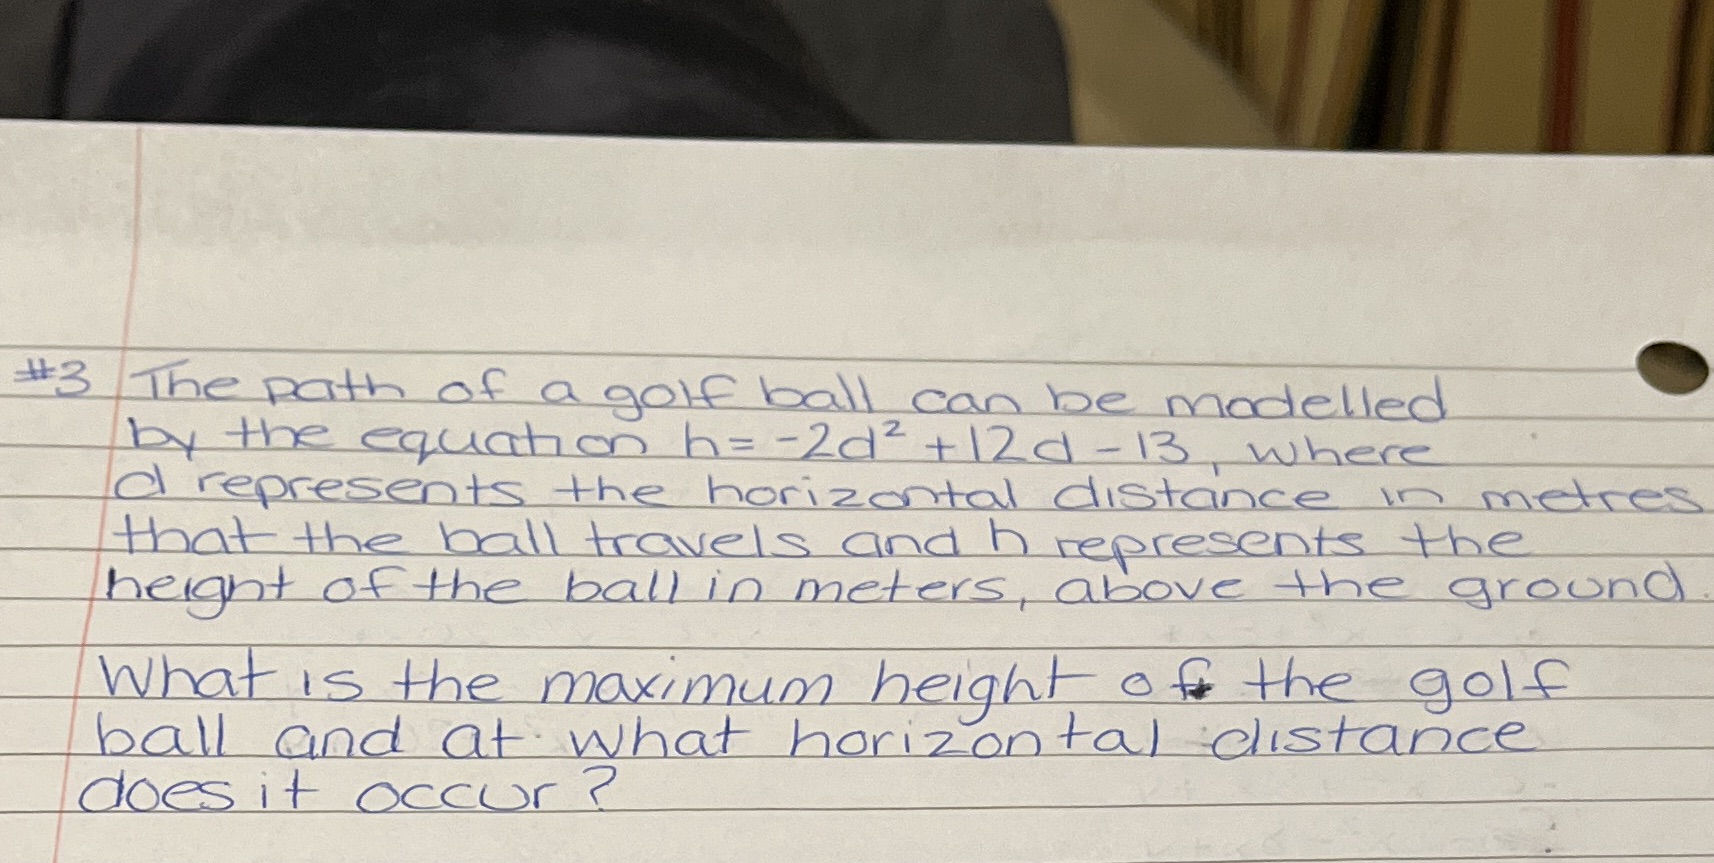 #3 The path of a golf ball can be modelled
by the equation h = -2d² + 12d - 13, where
d represents the horizontal distance in metres
that the ball travels and h represents the
height of the ball in meters, above the ground.
What is the maximum height of the golf
ball and at what horizontal distance
does it occur?